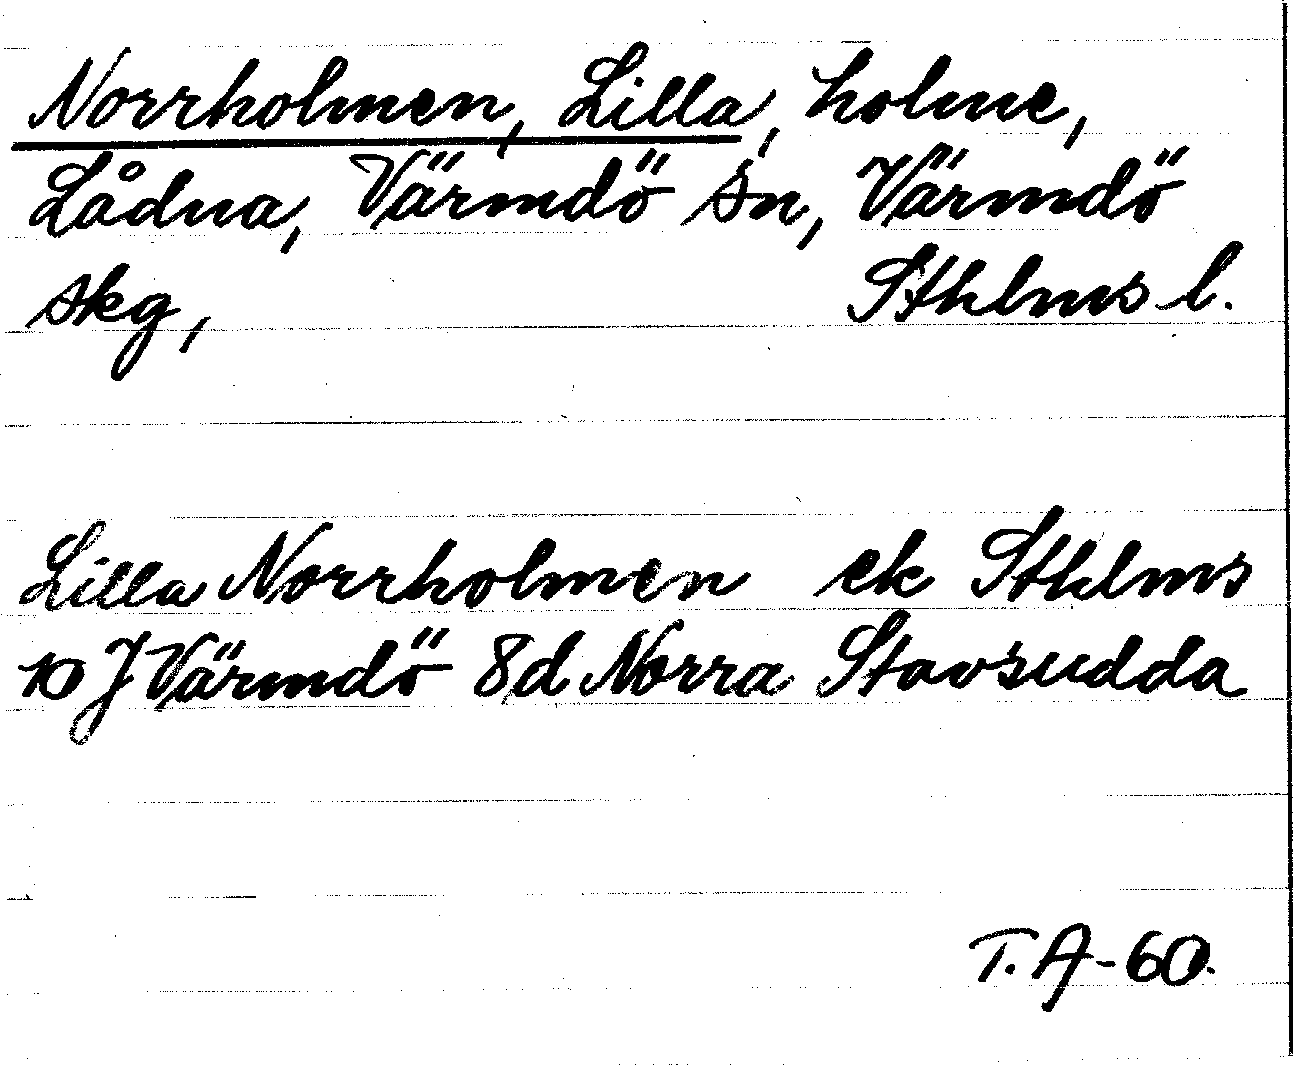 Norrholmen, Lilla, holme,
Lådna, Värmdö sn, Värmdö
skg, Sthlms l.
Lilla Norrholmen ek Sthlms
10 J Värmdö 8d Norra Stavsudda
T. A-60.